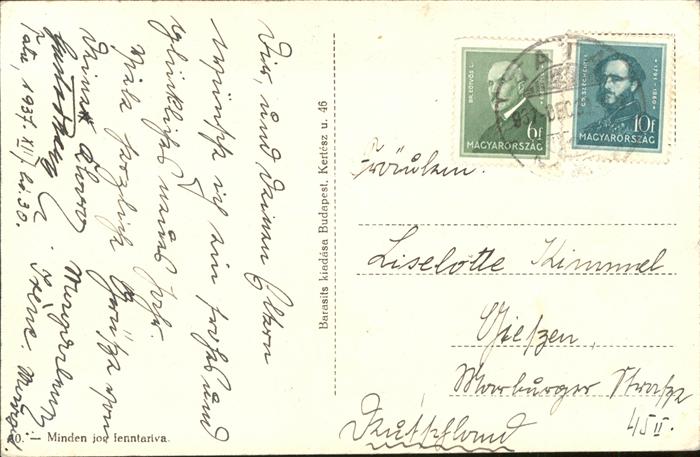 Dir, und Deinen Eltern
wünsche ich ein frohes und
glückliches neues Jahr.
Viele herzliche Grüsse von
Tata, 1937. XII. 30.
Barasits kiadása Budapest, Kertész u. 46
40. — Minden jog fenntartva.
BR. EÖTVÖS L.
6f
MAGYARORSZÁG
GR. SZÉCHENYI I.
1791-1860
10f
MAGYARORSZÁG
Fräulein.
Liselotte Kimmel
Gießen,
Marburger Straße
45 II.
Deutschland